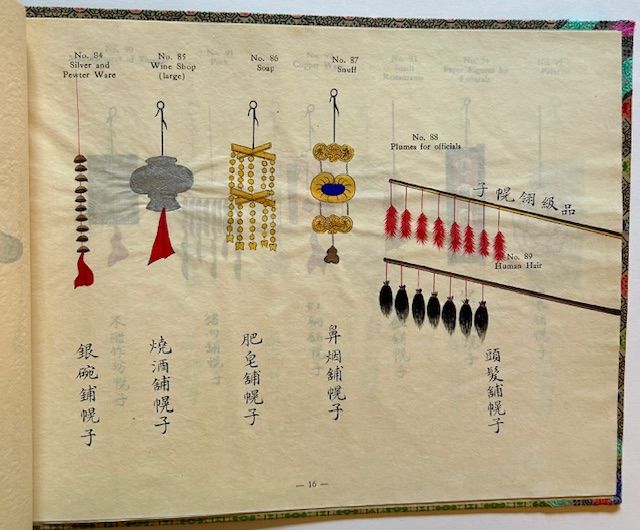 No. 84
Silver and
Pewter Ware
No. 85
Wine Shop
(large)
No. 86
Soap
No. 87
Snuff
No. 88
Plumes for officials
子幌翎級品
No. 89
Human Hair
銀碗鋪幌子
燒酒舖幌子
肥皂舖幌子
鼻烟舖幌子
頭髮舖幌子
— 16 —